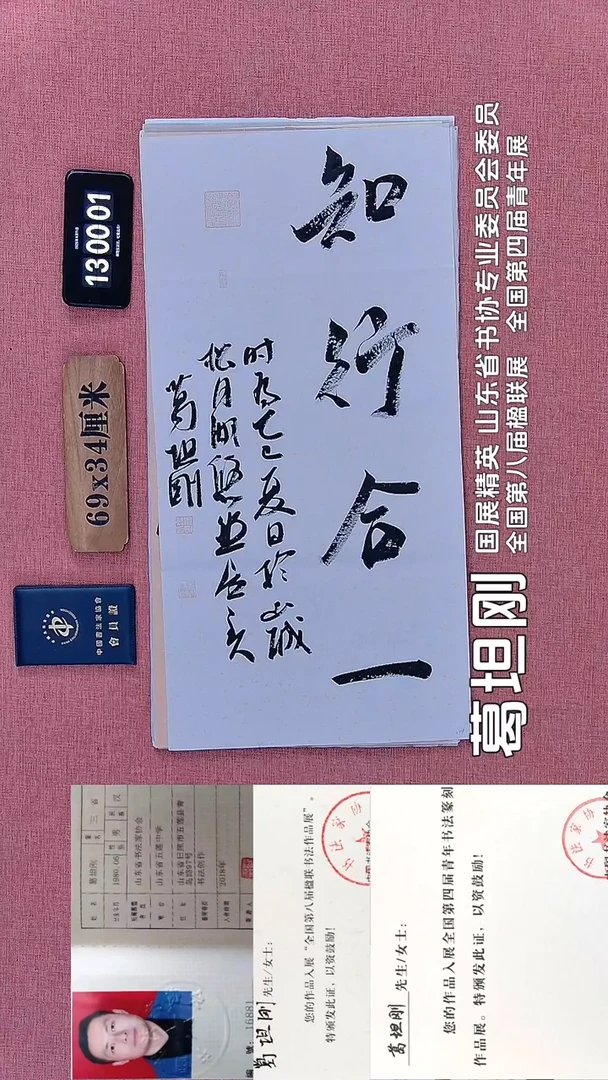 130001
69x34厘米
中国书法家协会
會員證
知行合一
乙巳夏日於山城
葛坦刚
葛坦刚
国展精英 山东省书协专业委员会委员
全国第八届楹联展 全国第四届青年展
姓名 葛坦刚 三省
1980.06 男 汉
山东省书法家协会
山东省五莲中学
书法创作
2018年
號: 16881
葛坦刚 先生/女士:
您的作品入展“全国第八届楹联书法作品展”。
特颁发此证,以资鼓励!
葛坦刚 先生/女士:
您的作品入展全国第四届青年书法篆刻
作品展。特颁发此证,以资鼓励!